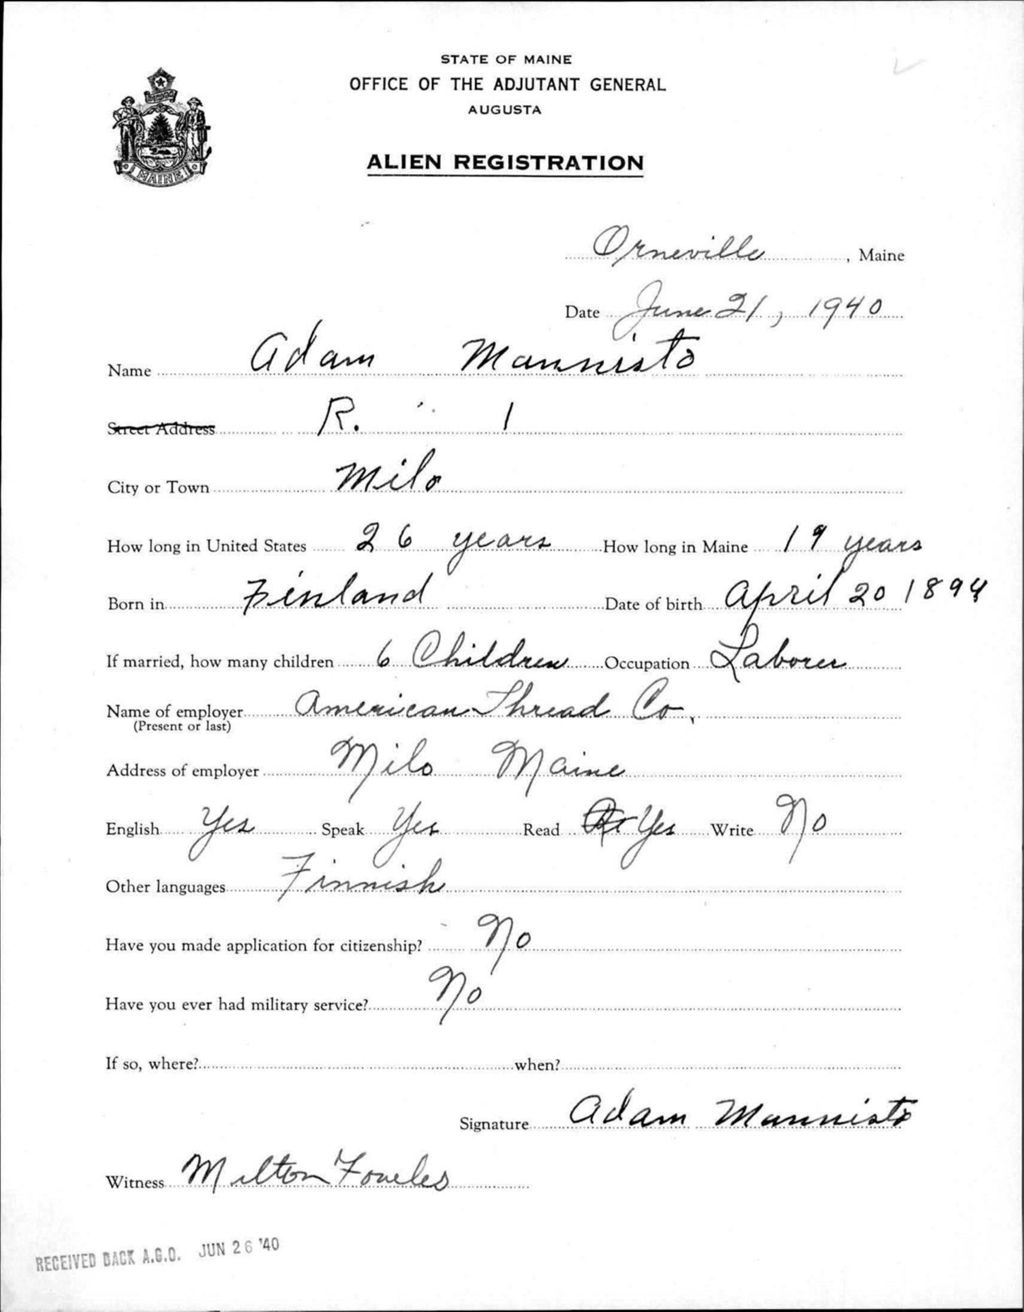 STATE OF MAINE
OFFICE OF THE ADJUTANT GENERAL
AUGUSTA
ALIEN REGISTRATION
MAINE
Orneville, Maine
Date June 21, 1940
Name Adam Mannisto
Street Address R. 1
City or Town Milo
How long in United States 26 years How long in Maine 19 years
Born in Finland Date of birth April 20 1894
If married, how many children 6 Children Occupation Laborer
Name of employer American Thread Co.
(Present or last)
Address of employer Milo Maine
English Yes Speak Yes Read Yes Write No
Other languages Finnish
Have you made application for citizenship? No
Have you ever had military service? No
If so, where? when?
Signature Adam Mannisto
Witness Milton Fowles
RECEIVED BACK A.G.O. JUN 26 '40